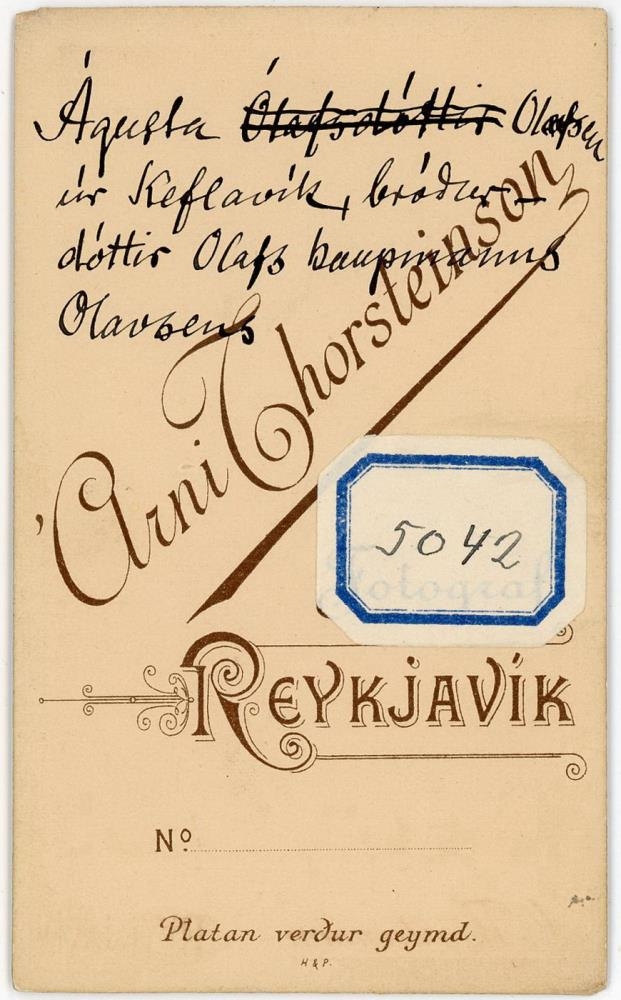 Ágústa Ólafsdóttir Olafsen
úr Keflavík, bróður-
dóttir Olafs kaupmanns
Olavsens
Árni Thorsteinson
5042
Fotograf
REYKJAVÍK
Nº
Platan verður geymd.
H & P.